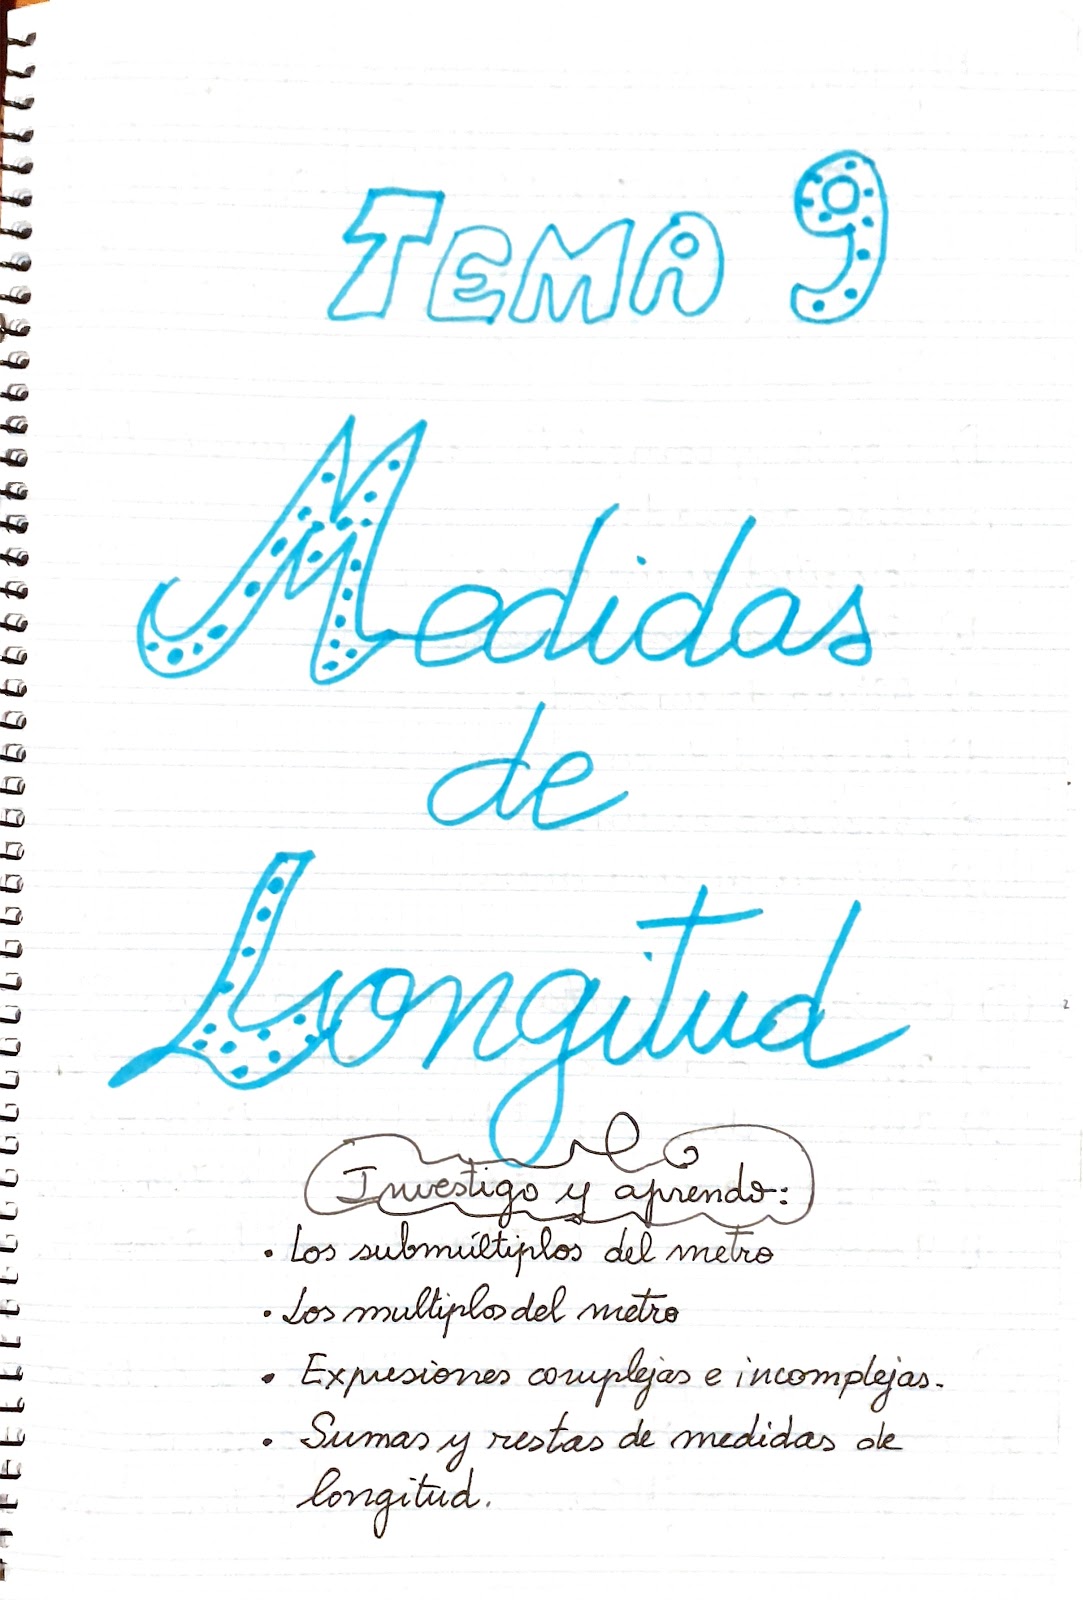 TEMA 9
Medidas
de
Longitud
Investigo y aprendo:
• Los submúltiplos del metro
• Los multiplos del metro
• Expresiones complejas e incomplejas.
• Sumas y restas de medidas de
longitud.